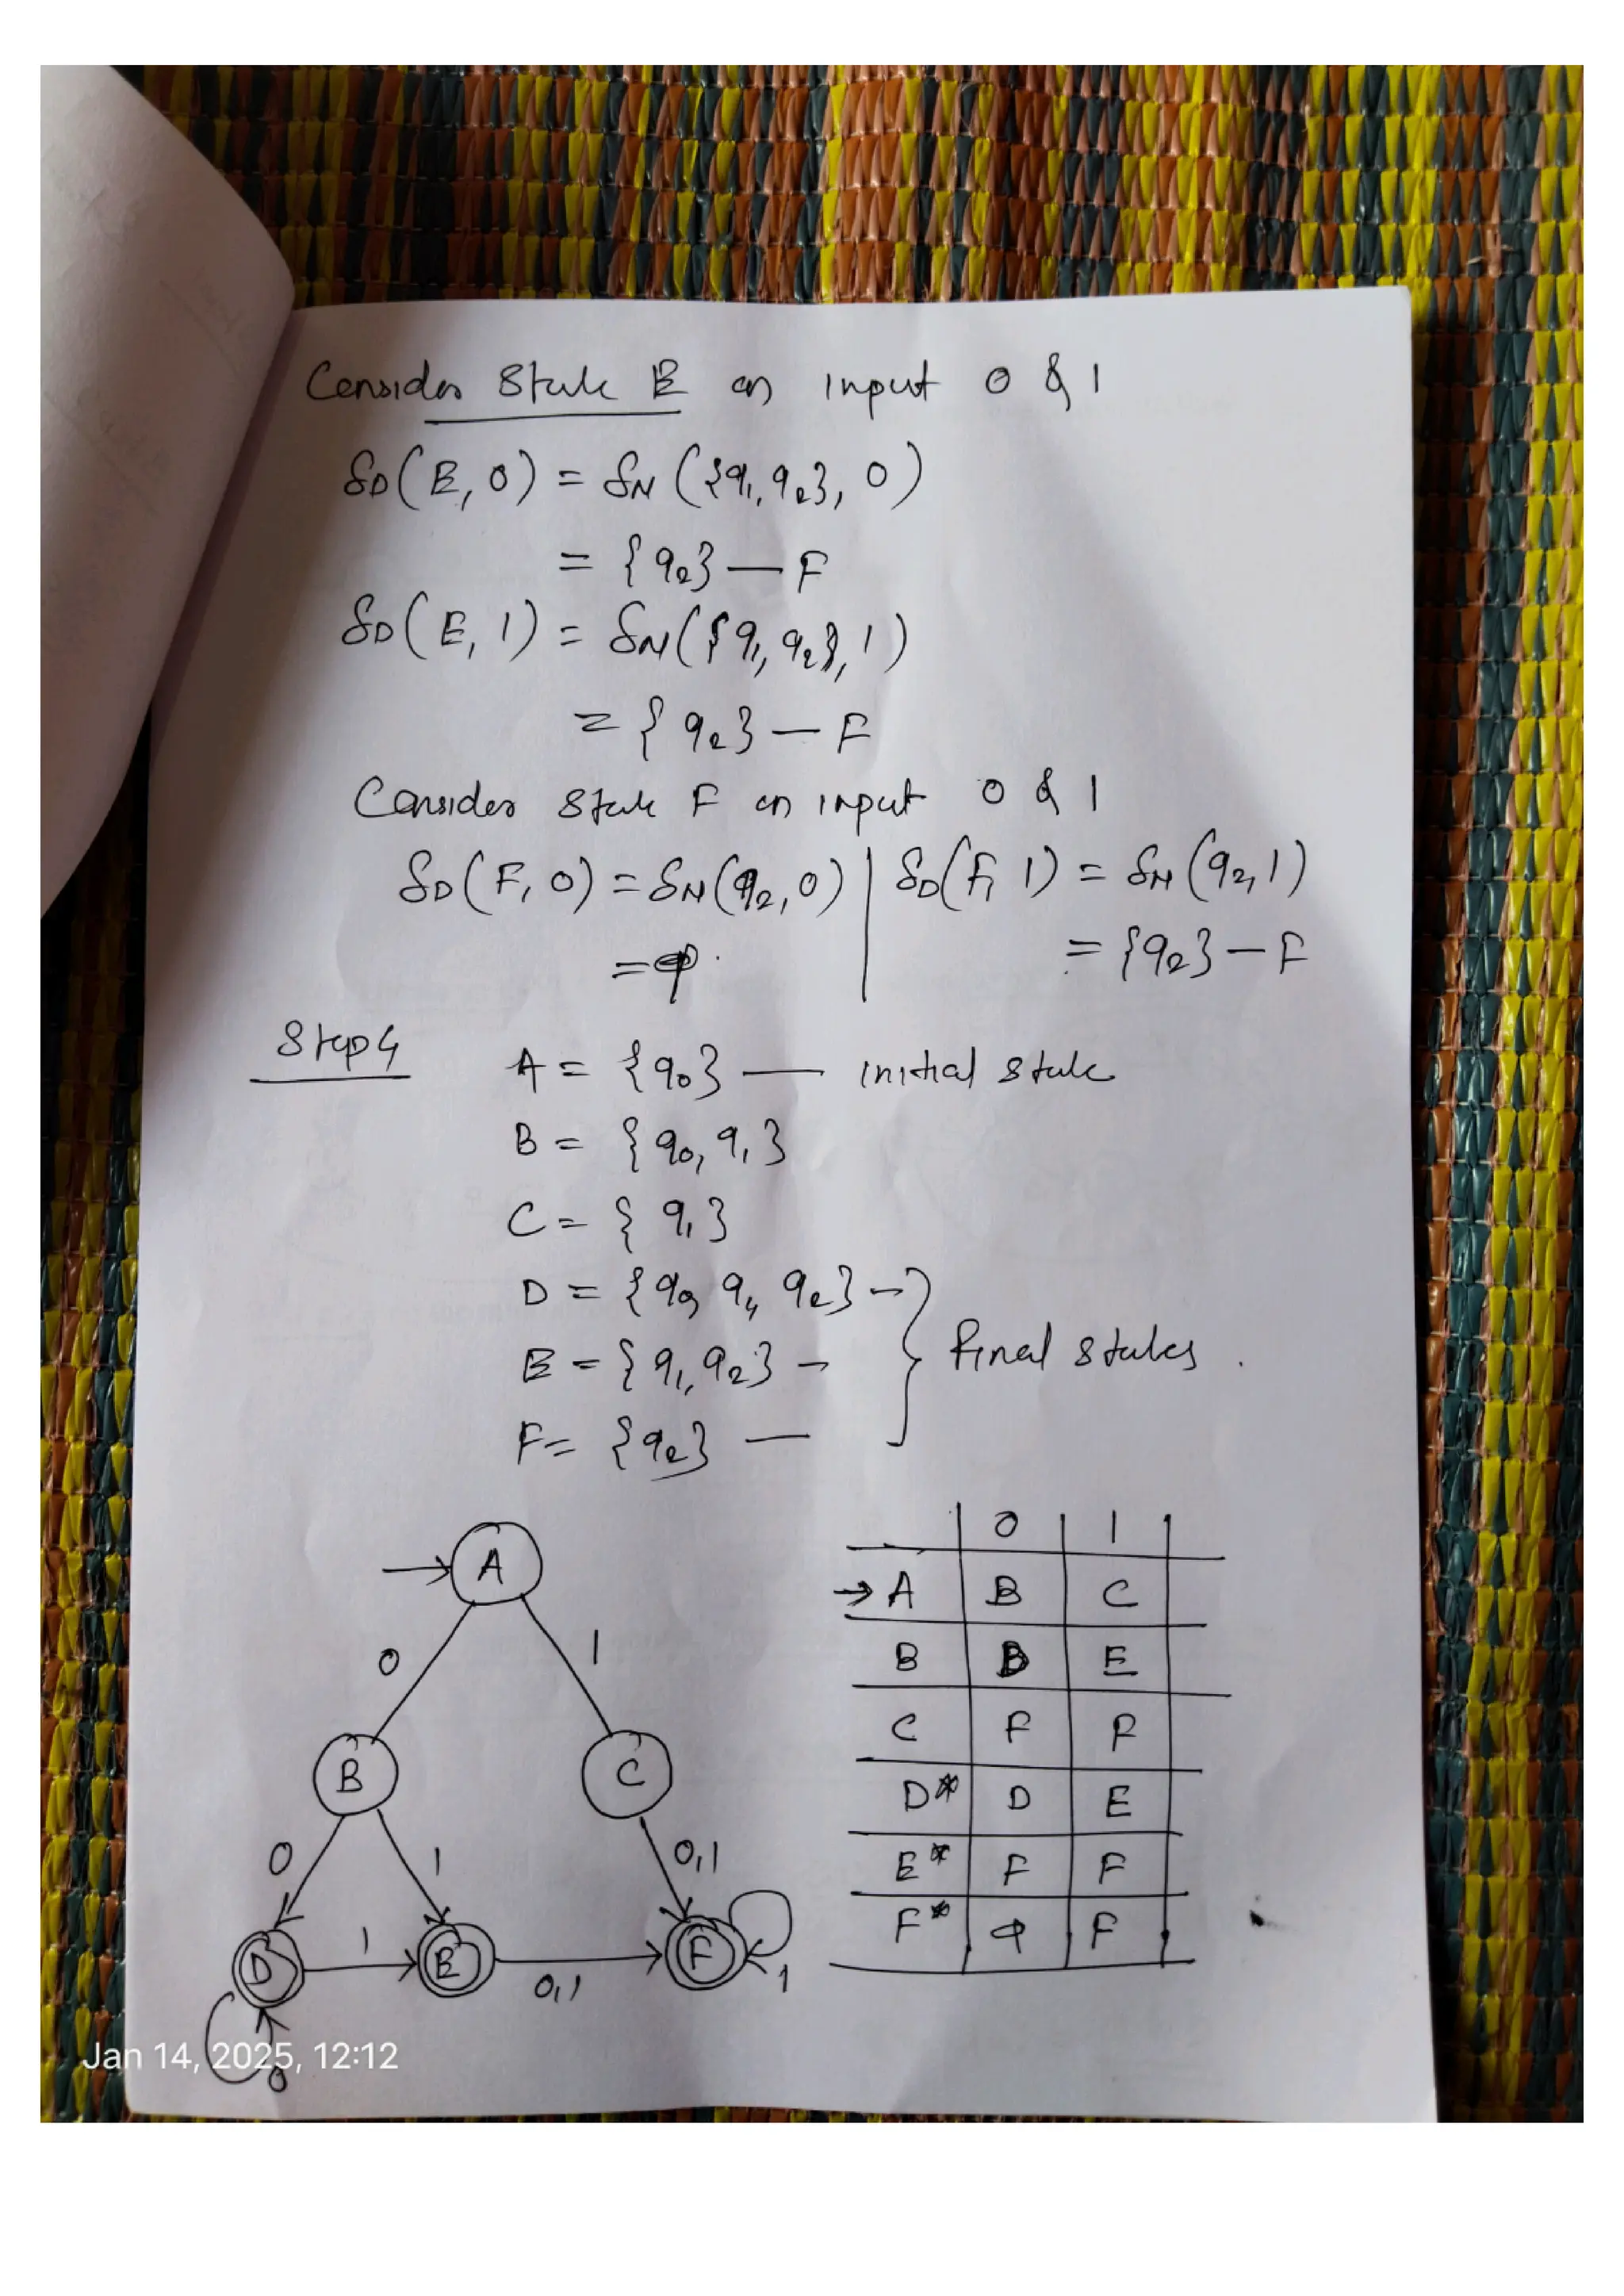 Consider State E on input 0 & 1
δD(E, 0) = δN({q1, q2}, 0)
= {q2} — F
δD(E, 1) = δN({q1, q2}, 1)
= {q2} — F
Consider State F on input 0 & 1
δD(F, 0) = δN(q2, 0) | δD(F, 1) = δN(q2, 1)
= φ. = {q2} — F
Step 4
A = {q0} — initial state
B = {q0, q1}
C = {q1}
D = {q0, q1, q2} -
E = {q1, q2} - } Final states.
F = {q2} —
0 1
→ A B C
B D E
C F F
D* D E
E* F F
F* φ F
A
0 1
B C
0 1 0,1
D 1 E 0,1 F 1
0
Jan 14, 2025, 12:12